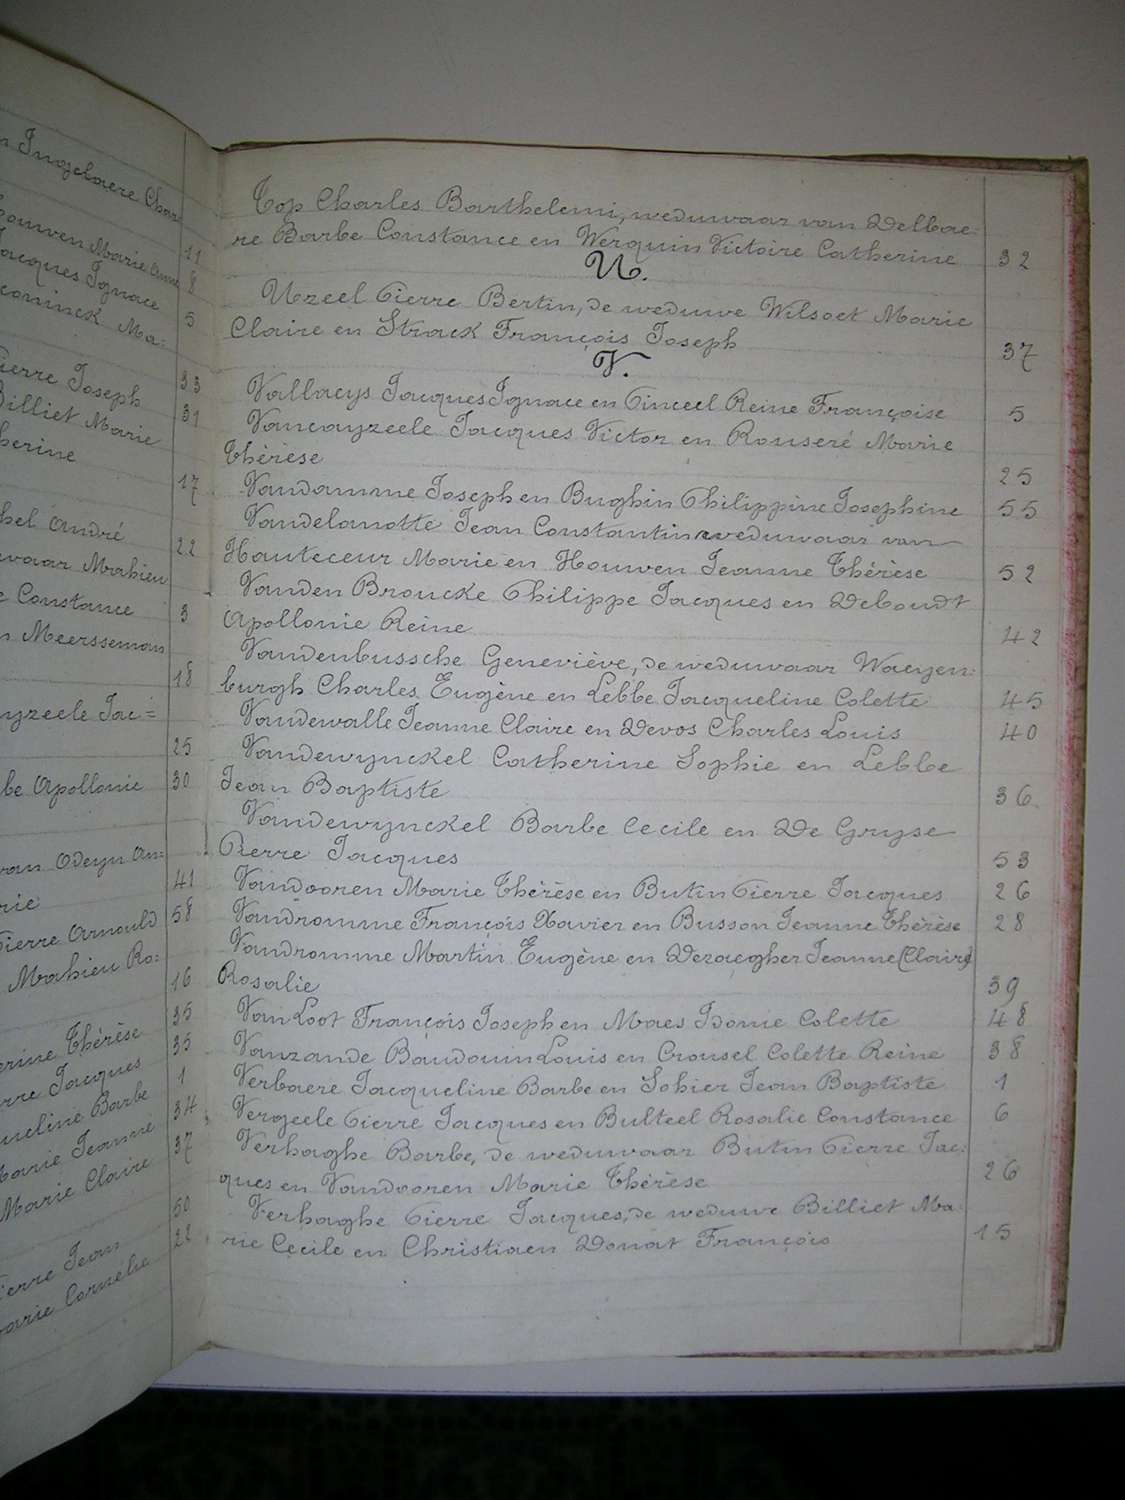 Ingelaere Char
11
Marie Anne
8
Jacques Ignace
5
coninck Ma=
Pierre Joseph
33
Billiet Marie
31
herine
17
hel André
22
waar Mahieu
Constance
3
Meersseman
18
yzeele Jac=
25
be Apollonie
30
van Odeyn An=
rie
41
Pierre Arnould
58
Mahieu Ro=
16
35
erine Thérèse
35
rre Jacques
1
queline Barbe
34
Marie Jeanne
37
Marie Claire
50
Pierre Jean
22
Marie Cornélie
Top Charles Barthelemi, weduwaar van Delbae=
re Barbe Constance en Werquin Victoire Catherine 32
U.
Uzeel Pierre Bertin, de weduwe Wilsoet Marie
Claire en Strack François Joseph 37
V.
Vallaeys Jacques Ignace en Pinceel Reine Françoise 5
Vancayzeele Jacques Victor en Rouseré Marie
Thérèse 25
Vandamme Joseph en Bughin Philippine Josephine 55
Vandelanotte Jean Constantin weduwaar van
Hauteceur Marie en Houwen Jeanne Thérèse 52
Vanden Broucke Philippe Jacques en Deboudt
Apollonie Reine 42
Vandenbussche Geneviève, de weduwaar Waeyen=
burgh Charles Eugène en Lebbe Jacqueline Colette 45
Vandewalle Jeanne Claire en Devos Charles Louis 40
Vandewynckel Catherine Sophie en Lebbe
Jean Baptiste 36
Vandewynckel Barbe Cecile en De Gryse
Pierre Jacques 53
Vandooren Marie Thérèse en Butin Pierre Jacques 26
Vandromme François Xavier en Busson Jeanne Thérèse 28
Vandromme Martin Eugène en Dezaegher Jeanne (Claire)
Rosalie 39
Van Loot François Joseph en Maes Idonie Colette 48
Vanzande Baudouin Louis en Crousel Colette Reine 38
Verbaere Jacqueline Barbe en Sohier Jean Baptiste 1
Vergeele Pierre Jacques en Bulteel Rosalie Constance 6
Verhaghe Barbe, de weduwaar Butin Pierre Jac=
ques en Vandooren Marie Thérèse 26
Verhaghe Pierre Jacques, de weduwe Billiet Ma=
rie Cecile en Christiaen Donat François 15